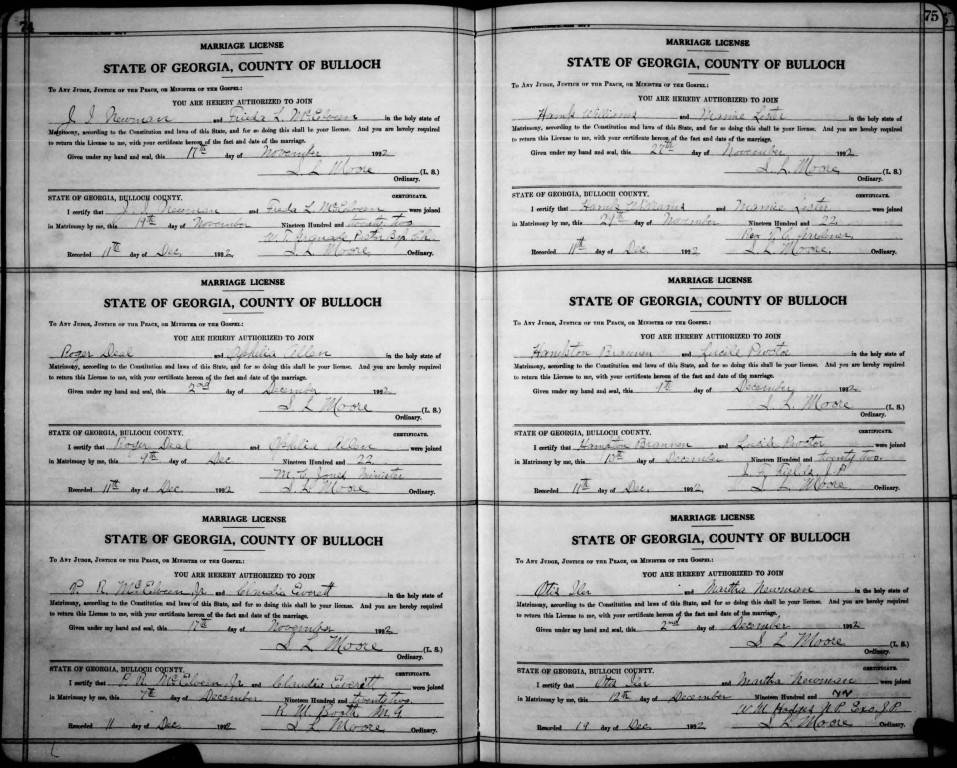 74
MARRIAGE LICENSE
STATE OF GEORGIA, COUNTY OF BULLOCH
To Any Judge, Justice of the Peace, or Minister of the Gospel:
YOU ARE HEREBY AUTHORIZED TO JOIN
J. J. Newman and Frieda L. McElveen in the holy state of
Matrimony, according to the Constitution and laws of this State, and for so doing this shall be your license. And you are hereby required
to return this License to me, with your certificate hereon of the fact and date of the marriage.
Given under my hand and seal, this 17th day of November 1992
S. L. Moore (L. S.)
Ordinary.
STATE OF GEORGIA, BULLOCH COUNTY. CERTIFICATE.
I certify that J. J. Newman and Frieda L McElveen were joined
in Matrimony by me, this 19th day of November Nineteen Hundred and twenty two
W. T.
Recorded 11th day of Dec. 1992. S. L. Moore Ordinary.
MARRIAGE LICENSE
STATE OF GEORGIA, COUNTY OF BULLOCH
To Any Judge, Justice of the Peace, or Minister of the Gospel:
YOU ARE HEREBY AUTHORIZED TO JOIN
Roger Deal and Ophelia Allen in the holy state of
Matrimony, according to the Constitution and laws of this State, and for so doing this shall be your license. And you are hereby required
to return this License to me, with your certificate hereon of the fact and date of the marriage.
Given under my hand and seal, this 2nd day of December 1992
S. L. Moore (L. S.)
Ordinary.
STATE OF GEORGIA, BULLOCH COUNTY. CERTIFICATE.
I certify that Roger Deal and Ophelia Allen were joined
in Matrimony by me, this 9th day of Dec Nineteen Hundred and 22
Jones Minister
Recorded 11th day of Dec. 1992 S. L. Moore Ordinary.
MARRIAGE LICENSE
STATE OF GEORGIA, COUNTY OF BULLOCH
To Any Judge, Justice of the Peace, or Minister of the Gospel:
YOU ARE HEREBY AUTHORIZED TO JOIN
P. R. McElveen Jr. and Claudia Everett in the holy state of
Matrimony, according to the Constitution and laws of this State, and for so doing this shall be your license. And you are hereby required
to return this License to me, with your certificate hereon of the fact and date of the marriage.
Given under my hand and seal, this 17th day of November 1992
S. L. Moore (L. S.)
Ordinary.
STATE OF GEORGIA, BULLOCH COUNTY. CERTIFICATE.
I certify that P. R. McElveen Jr. and Claudia Everett were joined
in Matrimony by me, this 7th day of December Nineteen Hundred and twenty two.
R. M. Booth M. G
Recorded 11 day of Dec 1992 S. L. Moore Ordinary.
75
MARRIAGE LICENSE
STATE OF GEORGIA, COUNTY OF BULLOCH
To Any Judge, Justice of the Peace, or Minister of the Gospel:
YOU ARE HEREBY AUTHORIZED TO JOIN
Hamp Williams and Mamie Lester in the holy state of
Matrimony, according to the Constitution and laws of this State, and for so doing this shall be your license. And you are hereby required
to return this License to me, with your certificate hereon of the fact and date of the marriage.
Given under my hand and seal, this 27th day of November 1992
S. L. Moore (L. S.)
Ordinary.
STATE OF GEORGIA, BULLOCH COUNTY. CERTIFICATE.
I certify that Hamp Williams and Mamie Lester were joined
in Matrimony by me, this 27th day of November Nineteen Hundred and 22
Rev.
Recorded 11th day of Dec. 1992 S. L. Moore. Ordinary.
MARRIAGE LICENSE
STATE OF GEORGIA, COUNTY OF BULLOCH
To Any Judge, Justice of the Peace, or Minister of the Gospel:
YOU ARE HEREBY AUTHORIZED TO JOIN
Hampton Brannen and Lucile Proctor in the holy state of
Matrimony, according to the Constitution and laws of this State, and for so doing this shall be your license. And you are hereby required
to return this License to me, with your certificate hereon of the fact and date of the marriage.
Given under my hand and seal, this 9th day of December 1992
S. L. Moore (L. S.)
Ordinary.
STATE OF GEORGIA, BULLOCH COUNTY. CERTIFICATE.
I certify that Hampton Brannen and Lucile Proctor were joined
in Matrimony by me, this 10th day of December Nineteen Hundred and twenty two.
Fields, J. P.
Recorded 11th day of Dec. 1992. S. L. Moore Ordinary.
MARRIAGE LICENSE
STATE OF GEORGIA, COUNTY OF BULLOCH
To Any Judge, Justice of the Peace, or Minister of the Gospel:
YOU ARE HEREBY AUTHORIZED TO JOIN
Otis Iler and Martha Newman in the holy state of
Matrimony, according to the Constitution and laws of this State, and for so doing this shall be your license. And you are hereby required
to return this License to me, with your certificate hereon of the fact and date of the marriage.
Given under my hand and seal, this 2nd day of December 1992
S. L. Moore (L. S.)
Ordinary.
STATE OF GEORGIA, BULLOCH COUNTY. CERTIFICATE.
I certify that Otis Iler and Martha Newman were joined
in Matrimony by me, this 12th day of December Nineteen Hundred and
W. M. Hodges J. P.
Recorded 19 day of Dec. 1992 S. L. Moore Ordinary.